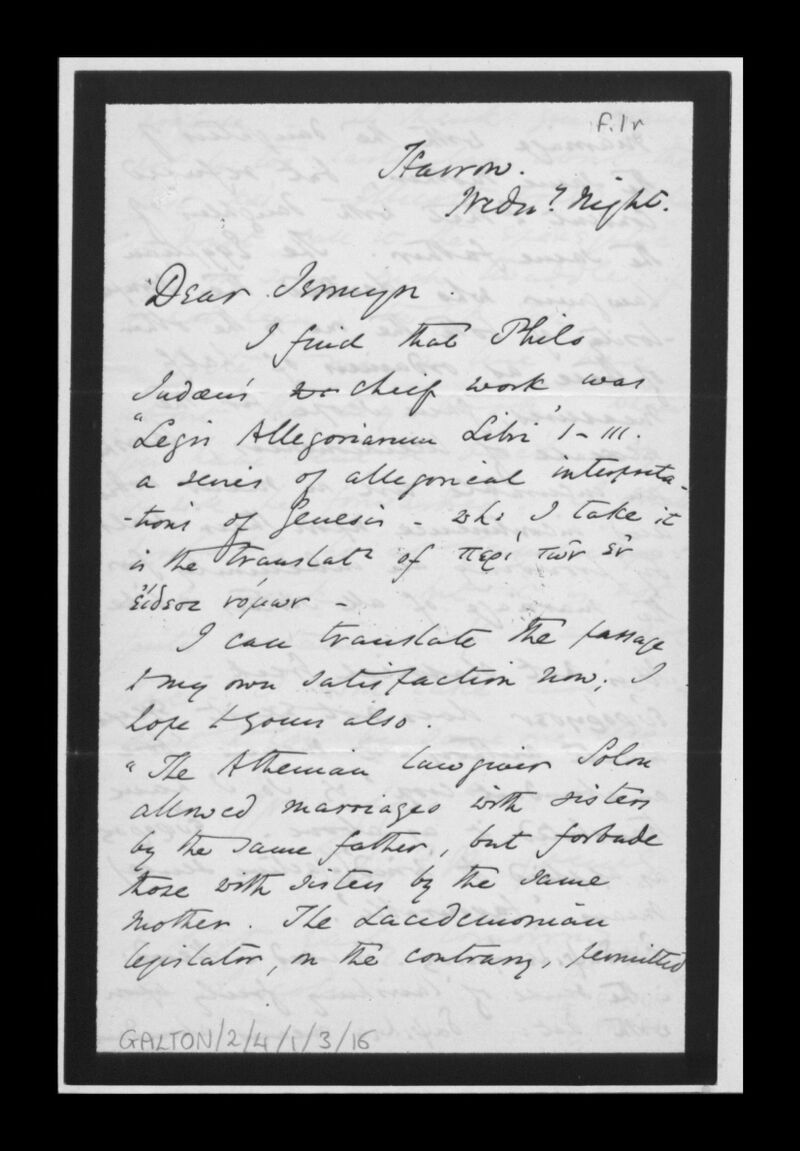 f.1r
Harrow.
Wedny. Night.
Dear Jermyn.
I find that Philo
Judæus' chief work was
"Legis Allegoriarum Libri' I-III.
a series of allegorical interpreta-
-tions of Genesis - wh: I take it
is the translatn of περὶ τῶν ἐν
εἴδει νόμων -
I can translate the passage
to my own satisfaction now; I
hope to yours also.
"The Athenian lawgiver Solon
allowed marriages with sisters
by the same father, but forbade
those with sisters by the same
mother. The Lacedemonian
legislator, on the contrary, permitted
GALTON/2/4/1/3/16